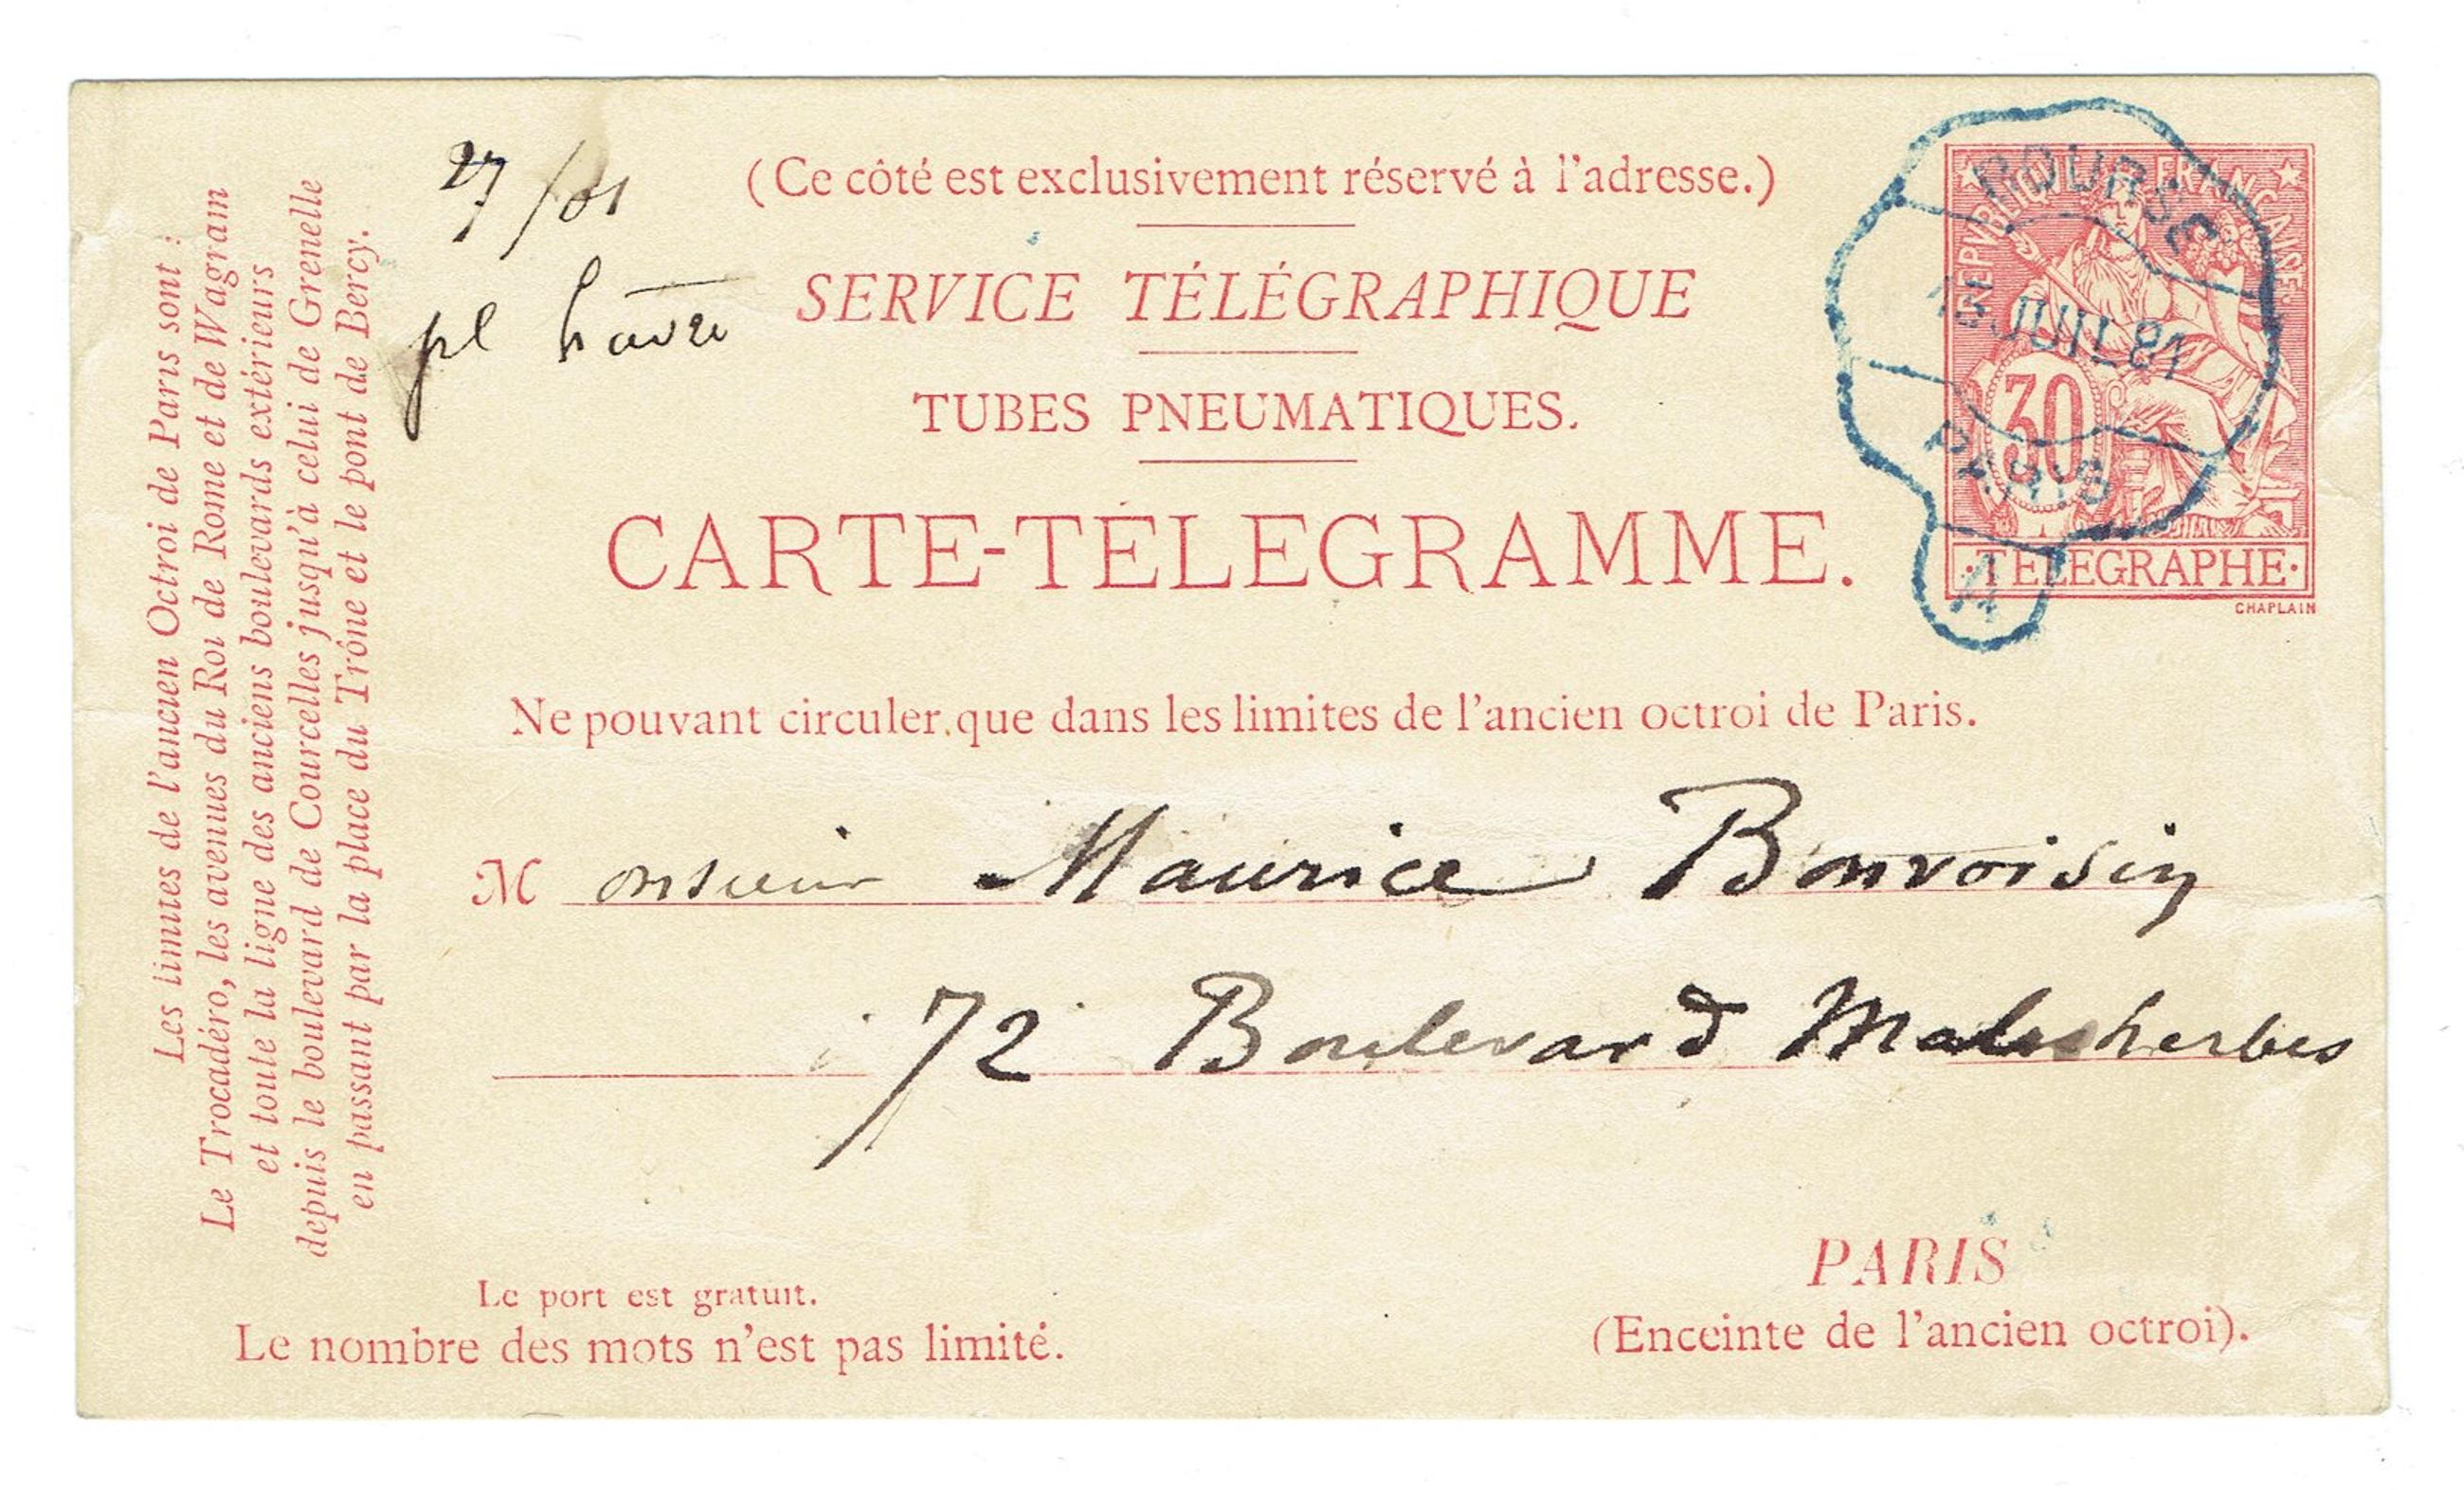 Les limites de l'ancien Octroi de Paris sont :
Le Trocadéro, les avenues du Roi de Rome et de Wagram
et toute la ligne des anciens boulevards extérieurs
depuis le boulevard de Courcelles jusqu'à celui de Grenelle
en passant par la place du Trône et le pont de Bercy.
pl havre
(Ce côté est exclusivement réservé à l'adresse.)
SERVICE TÉLÉGRAPHIQUE
TUBES PNEUMATIQUES.
CARTE-TÉLÉGRAMME.
REPVBLIQUE FRANÇAISE
30
TELEGRAPHE
CHAPLAIN
BOURSE
JUIL 81
PARIS
Ne pouvant circuler que dans les limites de l'ancien octroi de Paris.
Monsieur Maurice Bonvoisin
72 Boulevard Malesherbes
Le port est gratuit.
Le nombre des mots n'est pas limité.
PARIS
(Enceinte de l'ancien octroi).